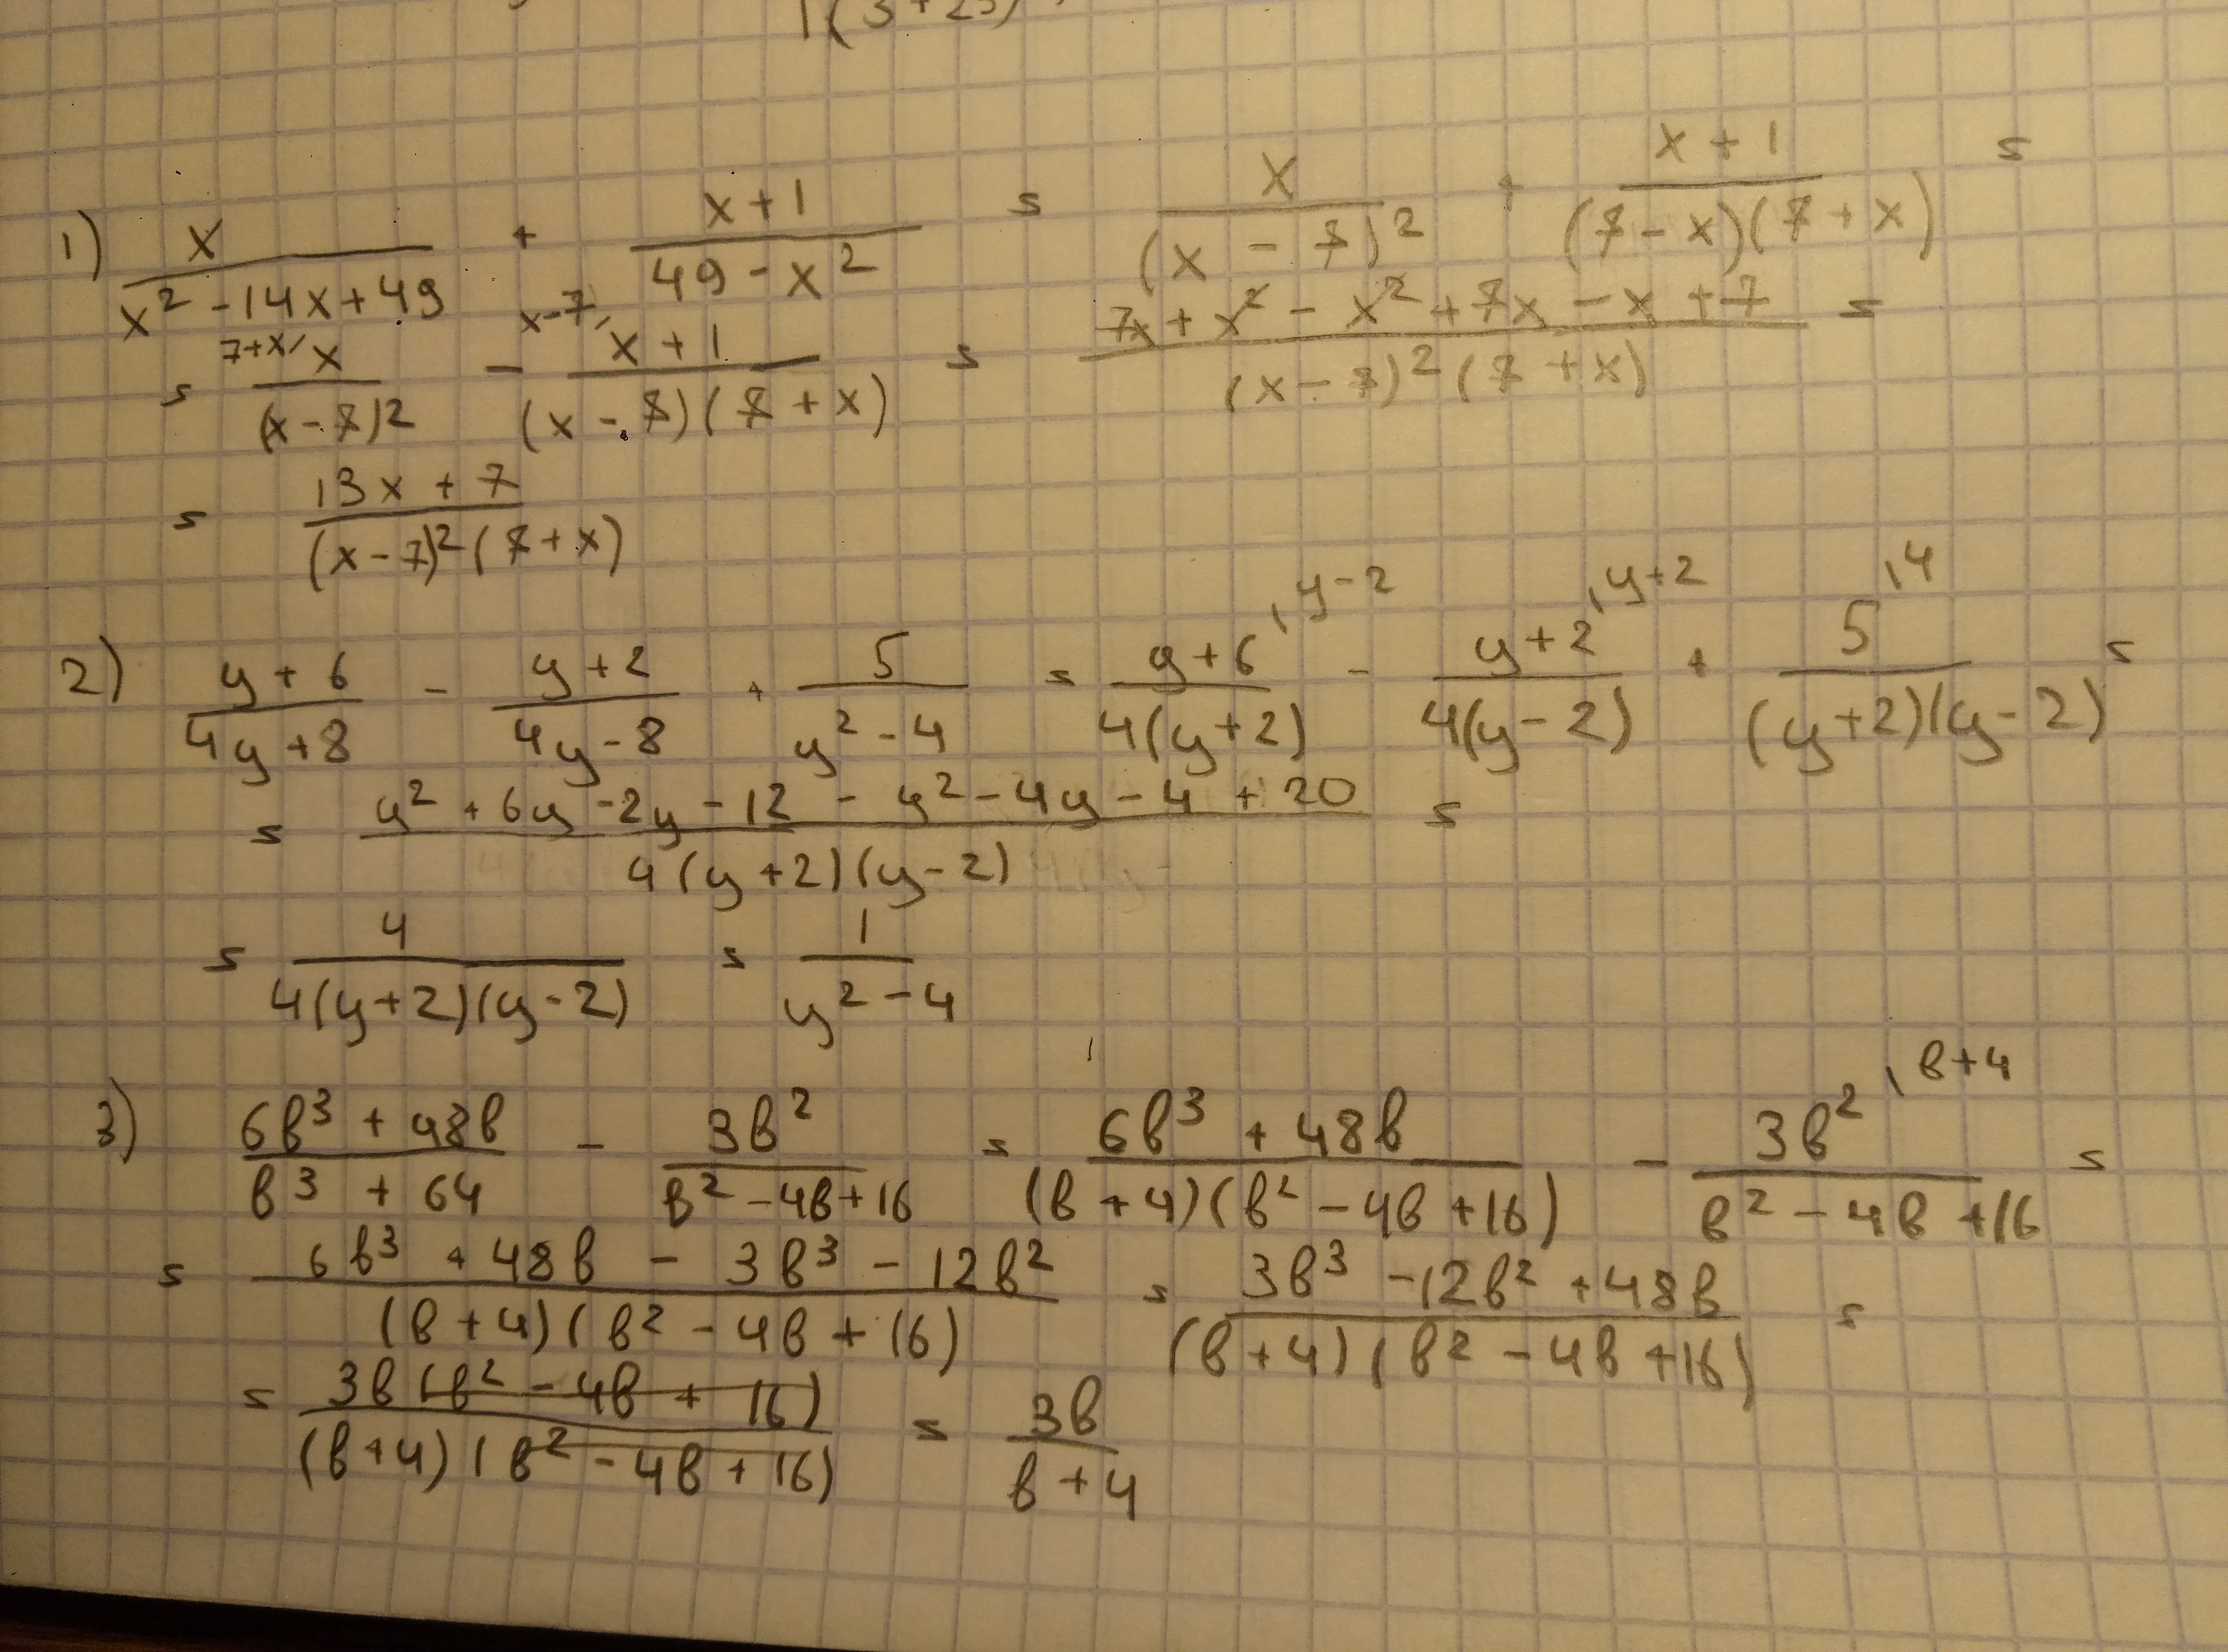 (3+25)
1) x/(x² - 14x + 49) + (x + 1)/(49 - x²) = x/(x - 7)² + (x + 1)/((7 - x)(7 + x)) =
= 7+x/ x/(x - 7)² - x-7/ (x + 1)/((x - 7)(7 + x)) = (7x + x² - x² + 7x - x + 7)/((x - 7)²(7 + x)) =
= (13x + 7)/((x - 7)²(7 + x))
2) (y + 6)/(4y + 8) - (y + 2)/(4y - 8) + 5/(y² - 4) = (y + 6)\y-2/(4(y + 2)) - (y + 2)\y+2/(4(y - 2)) + 5\4/((y + 2)(y - 2)) =
= (y² + 6y - 2y - 12 - y² - 4y - 4 + 20)/(4(y + 2)(y - 2)) =
= 4/(4(y + 2)(y - 2)) = 1/(y² - 4)
3) (6b³ + 48b)/(b³ + 64) - 3b²/(b² - 4b + 16) = (6b³ + 48b)/((b + 4)(b² - 4b + 16)) - 3b²\b+4/(b² - 4b + 16) =
= (6b³ + 48b - 3b³ - 12b²)/((b + 4)(b² - 4b + 16)) = (3b³ - 12b² + 48b)/((b + 4)(b² - 4b + 16)) =
= 3b(b² - 4b + 16)/((b + 4)(b² - 4b + 16)) = 3b/(b + 4)